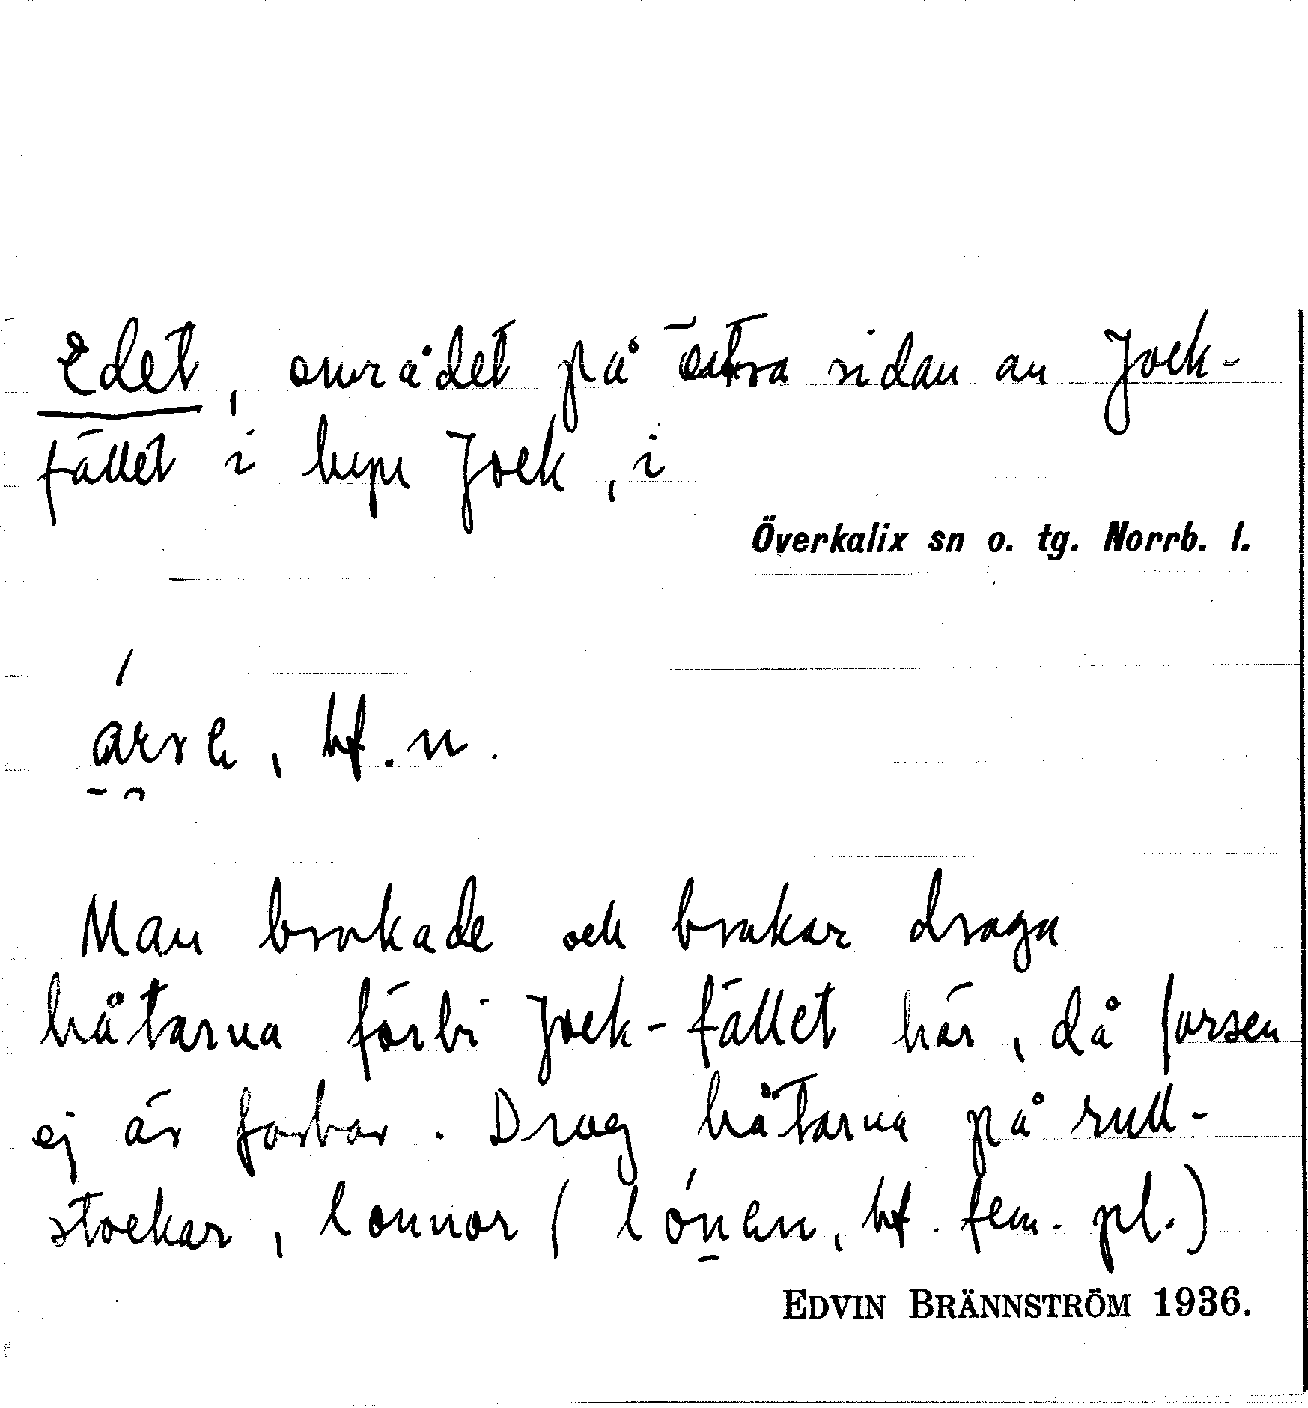 Edet, området på östra sidan av Jock-
fället i byn Jock, i
Överkalix sn o. tg. Norrb. l.
bf. n.
Man brukade och brukar draga
båtarna förbi Jock-fället här, då forsen
ej är farbar. Drog båtarna på rull-
stockar, lonnor (lónen, bf. fem. pl.)
EDVIN BRÄNNSTRÖM 1936.